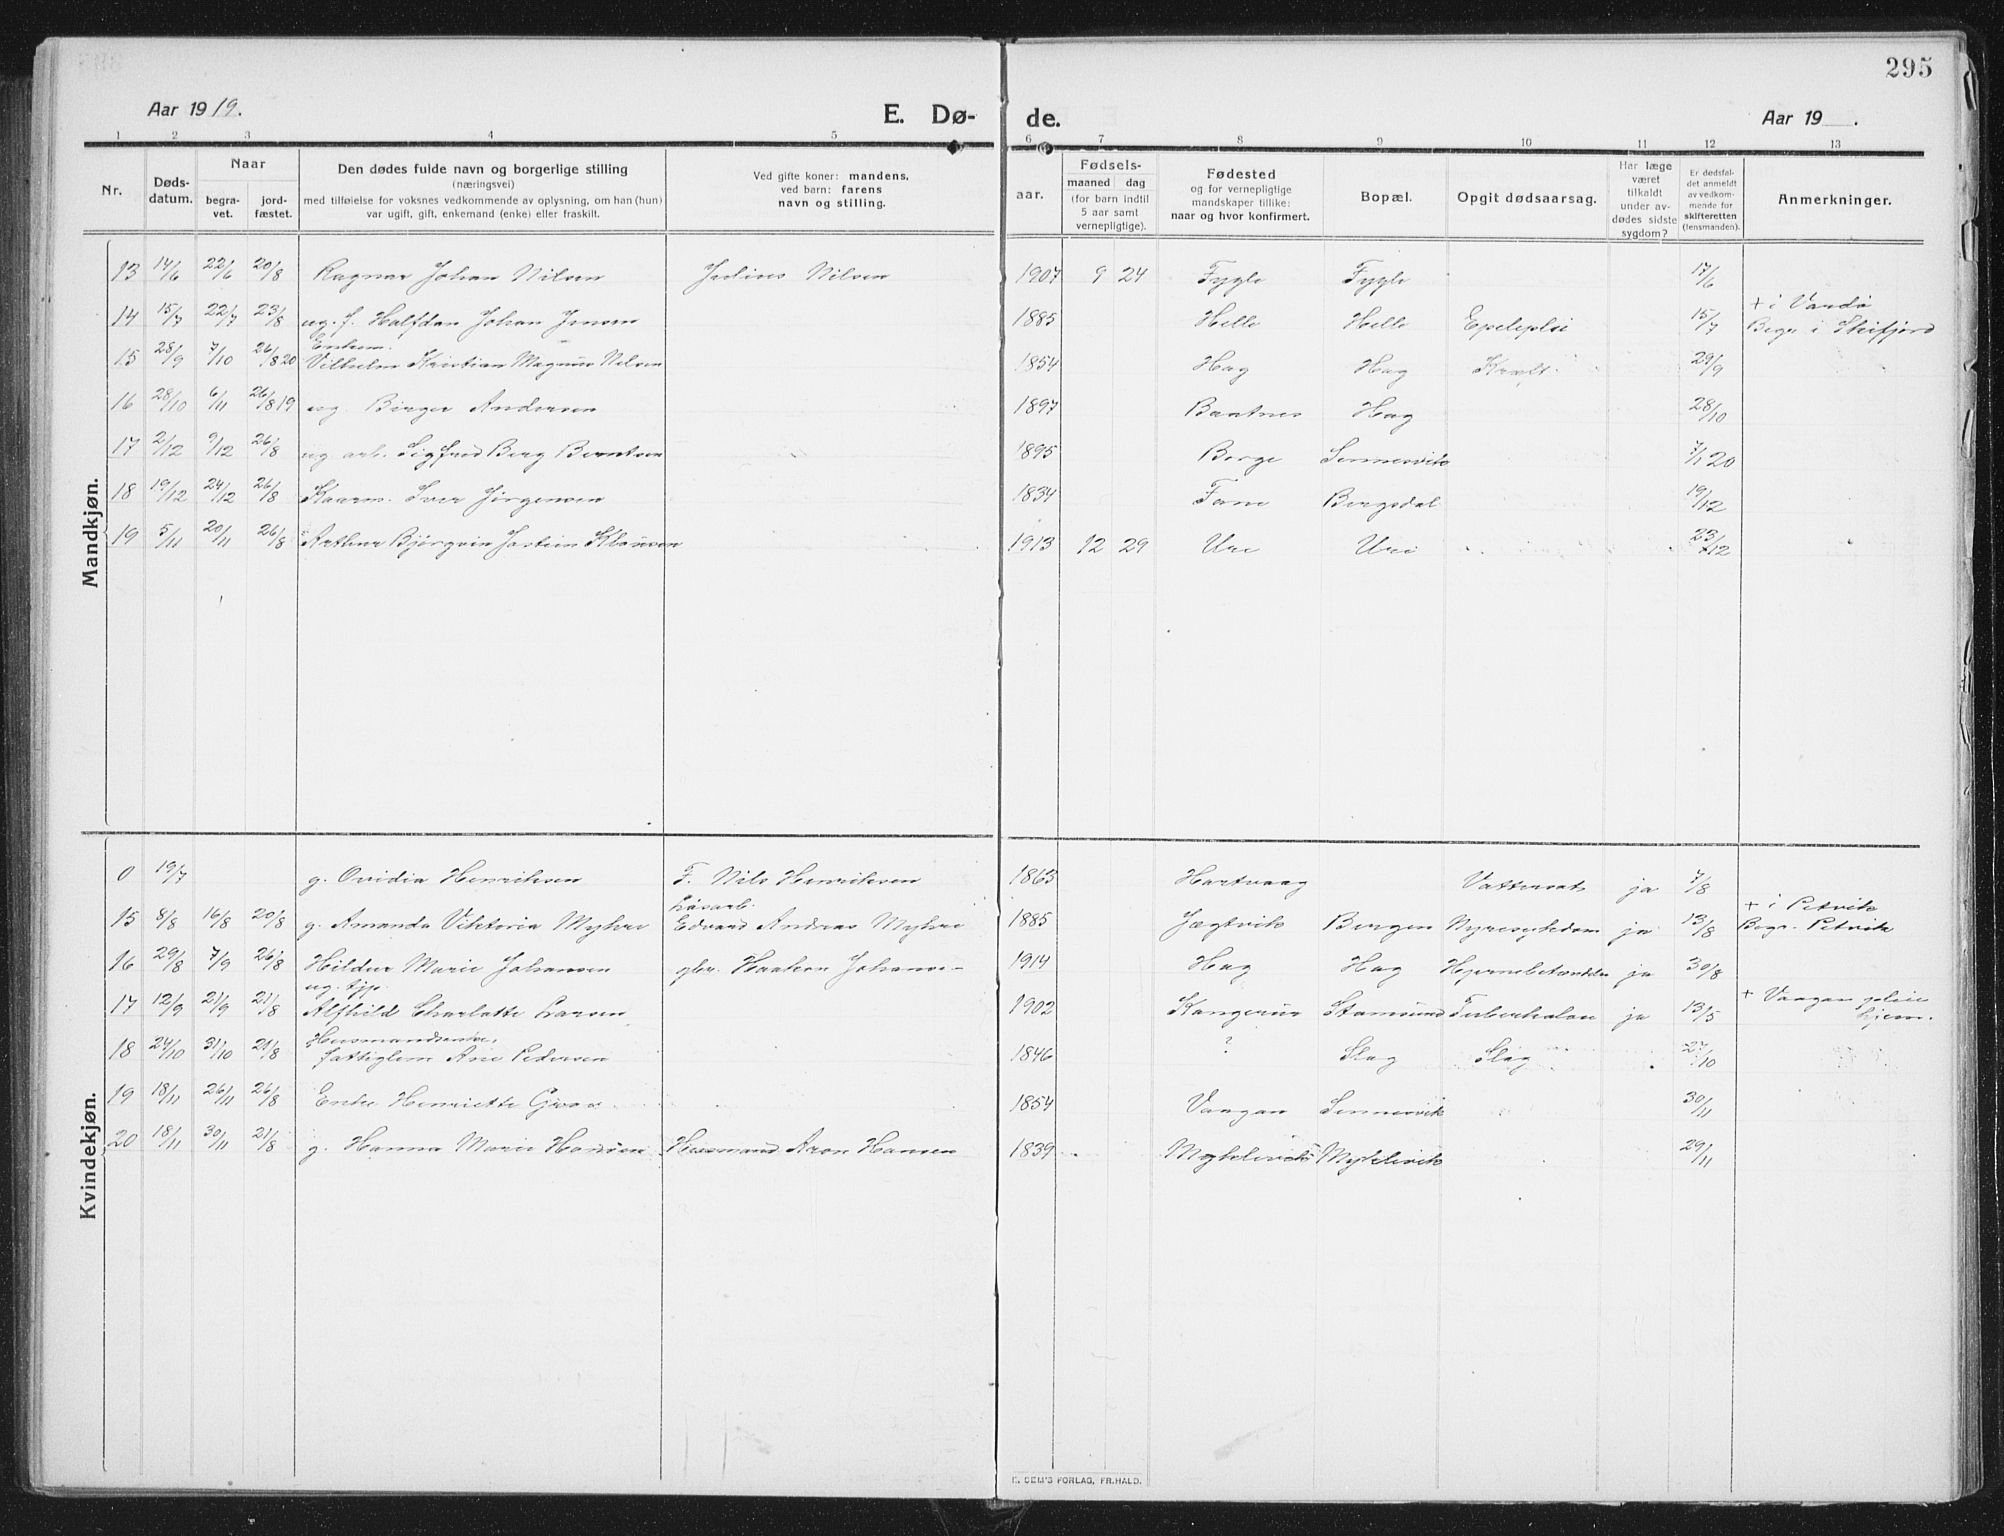 295
Aar 1919.
E. Dø-
de.
Aar 19 .
1 2 3 4 5 6 7 8 9 10 11 12 13
Nr.
Døds-
datum.
Naar
begra-
vet.
jord-
fæstet.
Den dødes fulde navn og borgerlige stilling
(næringsvei)
med tilføielse for voksnes vedkommende av oplysning, om han (hun)
var ugift, gift, enkemand (enke) eller fraskilt.
Ved gifte koner: mandens.
ved barn: farens
navn og stilling.
aar.
Fødsels-
maaned dag
(for barn indtil
5 aar samt
vernepligtige).
Fødested
og for vernepligtige
mandskaper tillike:
naar og hvor konfirmert.
Bopæl.
Opgit dødsaarsag.
Har læge
været
tilkaldt
under av-
dødes sidste
sygdom?
Er dødsfal-
det anmeldt
av vedkom-
mende for
skifteretten
(lensmanden).
Anmerkninger.
Mandkjøn.
13 14/6 22/6 20/8 Ragnar Johan Nilsen Nilsen 1907 9 24 Fygle Fygle 17/6
+ i Vardø
14 15/7 22/7 23/8 ug. f. Halfdan Johan Jensen 1885 Helle Helle Epelepsi 15/7 Begr. i
Enkem.
15 28/9 7/10 26/8 20 Vilhelm Kristian Magnus Nilsen 1854 Hag Hag Kræft 29/9
16 28/10 6/11 26/8 19 ug. Birger Andersen 1897 Baatnes Hag 28/10
17 2/12 9/12 26/8 ug. arb. Sigfred Berg Berntsen 1895 Borge Sennesvik 7/1 20
18 19/12 24/12 26/8 Kaarm. Iver Jørgensen 1834 Fane Bergsdal 19/12
19 5/11 20/11 26/8 Arthur Bjørgvin Klausen 1913 12 29 Ure Ure 23/12
Kvindekjøn.
0 19/7 g. Ovidia Henriksen F. Nils Henriksen 1863 Hartvaag Vattersot ja 7/8
Løsarb. + i Petvik
15 8/8 16/8 20/8 g. Amanda Viktoria Myhre Edvard Andreas Myhre 1885 Jægtvik Bergen Nyresykdom ja 13/8 Begr. Petvik
16 29/8 7/9 26/8 Hildur Marie Johansen gbr. Haakon 1914 Hag Hag ja 30/8
ug. tjp. + Vaagan pleie
17 12/9 21/9 21/8 Alfhild Charlotte Larsen 1902 Stamsund ja 13/5 hjem.
18 24/10 31/10 21/8 fattiglem Ane Pedersen 1846 ? Slag Slag 27/10
19 18/11 26/11 26/8 Enke Henriette 1854 Vaagan Sennesvik 30/11
20 18/11 30/11 21/8 g. Hanna Marie Hansen Husmand Aron Hansen 1839 Myklevik Myklevik 29/11
FORLAG, FR.HALD.